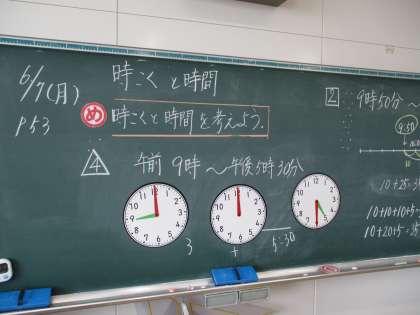 6/7(月)
P53
時こくと時間
め
時こくと時間を考えよう。
4
午前 9時〜午後5時30分
3
+
5:30
2
9時50分
9:50
10+25=35
10+10+10+5=
10+20+5=35